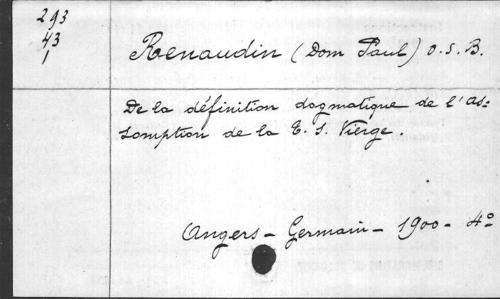 293
43
1
Renaudin (Dom Paul) O.S.B.
De la définition dogmatique de l'As-
somption de la T. S. Vierge.
Angers - Germain - 1900 - 4°